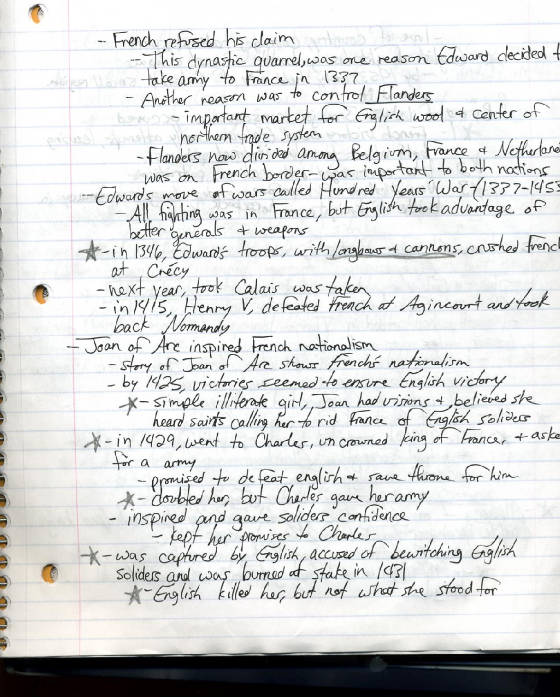 - French refused his claim
- This dynastic quarrel, was one reason Edward decided t
take army to France in 1337
- Another reason was to control Flanders
- important market for English wool & center of
northern trade system
- Flanders now divided among Belgium, France & Netherland
was on French border - was important to both nations
- Edward's move of wars called Hundred Years War - (1337-1453
- All fighting was in France, but English took advantage of
better generals & weapons
- in 1346, Edward's troops, with longbows & cannons, crushed French
at Crécy
- next year, took Calais was taken
- in 1415, Henry V, defeated French at Agincourt and took
back Normandy
- Joan of Arc inspired French nationalism
- story of Joan of Arc shows French's nationalism
- by 1425, victories seemed to ensure English victory
- simple illiterate girl, Joan had visions & believed she
heard saints calling her to rid France of English soliders
- in 1429, went to Charles, uncrowned king of France, & aske
for a army
- promised to defeat english & save throne for him
- doubted her, but Charles gave her army
- inspired and gave soliders confidence
- kept her promises to Charles
- was captured by English, accused of bewitching English
soliders and was burned at stake in 1431
- English killed her, but not what she stood for